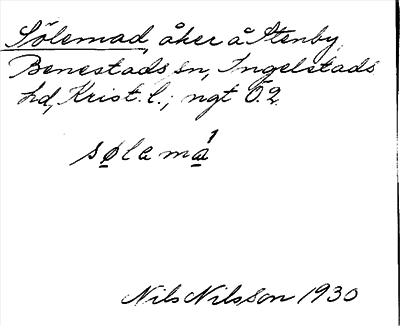 Sölemad, åker å Stenby,
Benestads sn, Ingelstads
hd, Krist. l.; ngt Ö. 2.
sølema1
Nils Nilsson 1930